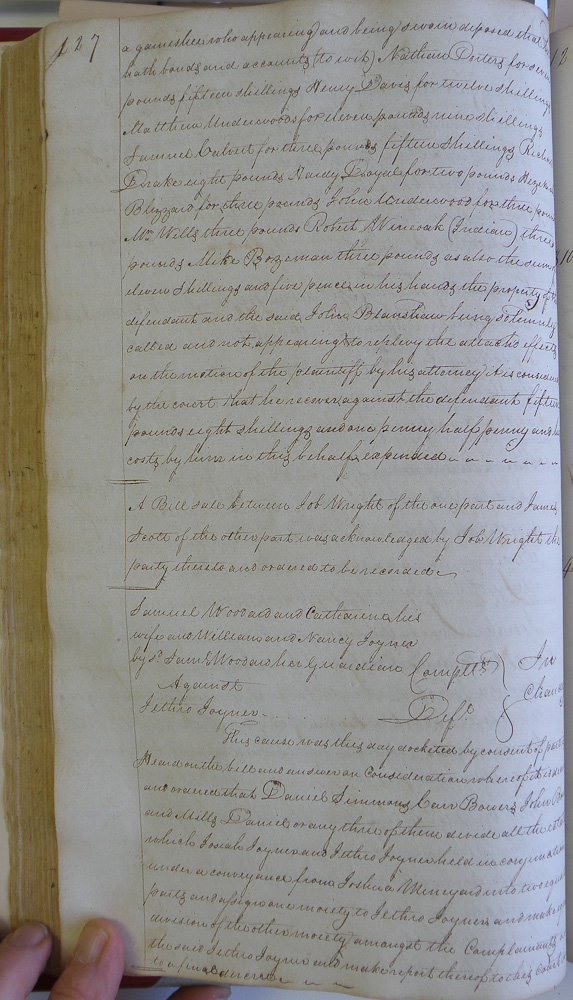 127
a garnishee who appearing and being sworn deposed that he
hath bonds and accounts (to wit) Nathan Porters for seven
pounds fifteen shillings Henry Davis for twelve shillings
Matthew Underwoods for eleven pounds nine shillings
Samuel Calvert for three pounds fifteen Shillings Richard
Drake eight pounds Hardy Doyal for two pounds Hezekiah
Blizzard for three pounds John Underwood for three pounds
Mr. Wills three pounds Robert Wineoak (Indian) three
pounds Mike Bozeman three pounds as also the sum
eleven shillings and five pence in his hands the property of the
defendant and the said John being solemnly
called and not appearing to replevy the attach'd effects
on the motion of the plaintiff by his attorney it is considered
by the court that he recover against the defendant fifteen
pounds eight shillings and one penny half penny and his
costs by him in this behalf expended
A Bill sale between Job Wright of the one part and James
Scott of the other part was acknowledged by Job Wright the
party thereto and ordered to be recorded
Samuel Woodard and Catharine his
wife and William and Nancy Joyner
by sd. Saml. Woodard her Guardian Complts.
Against
Jethro Joyner Deft.
In
Chan
This cause was this day docketed by consent of
Heard on the bill and answer on Consideration whereof it is
and ordered that Daniel Simmons Carr Bowers John
and Mills Daniel or any three of them divide all the
which Josiah Joyner and Jethro Joyner held in conjunction
under a conveyance from Joshua Mineyard into two equal
parts and assign one moiety to Jethro Joyner and make
division of the other moiety amongst the Complainants
the said Jethro Joyner and make report thereof to this Court
to a final decree